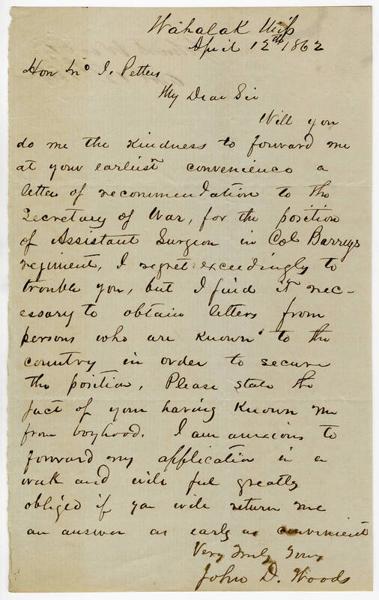 Wahalak Miss
April 12th 1862
Hon Jno J. Pettus
My Dear Sir
Will you
do me the kindness to forward me
at your earliest convenience a
letter of recommendation to the
Secretary of War, for the position
of Assistant Surgeon in Col Barrys
regiment, I regret exceedingly to
trouble you, but I find it nec-
essary to obtain letters from
persons who are known to the
country in order to secure
the position, Please state the
fact of your having known me
from boyhood. I am anxious to
forward my application in a
week and will feel greatly
obliged if you will return me
an answer as early as convenient
Very Truly Yours
John D. Woods